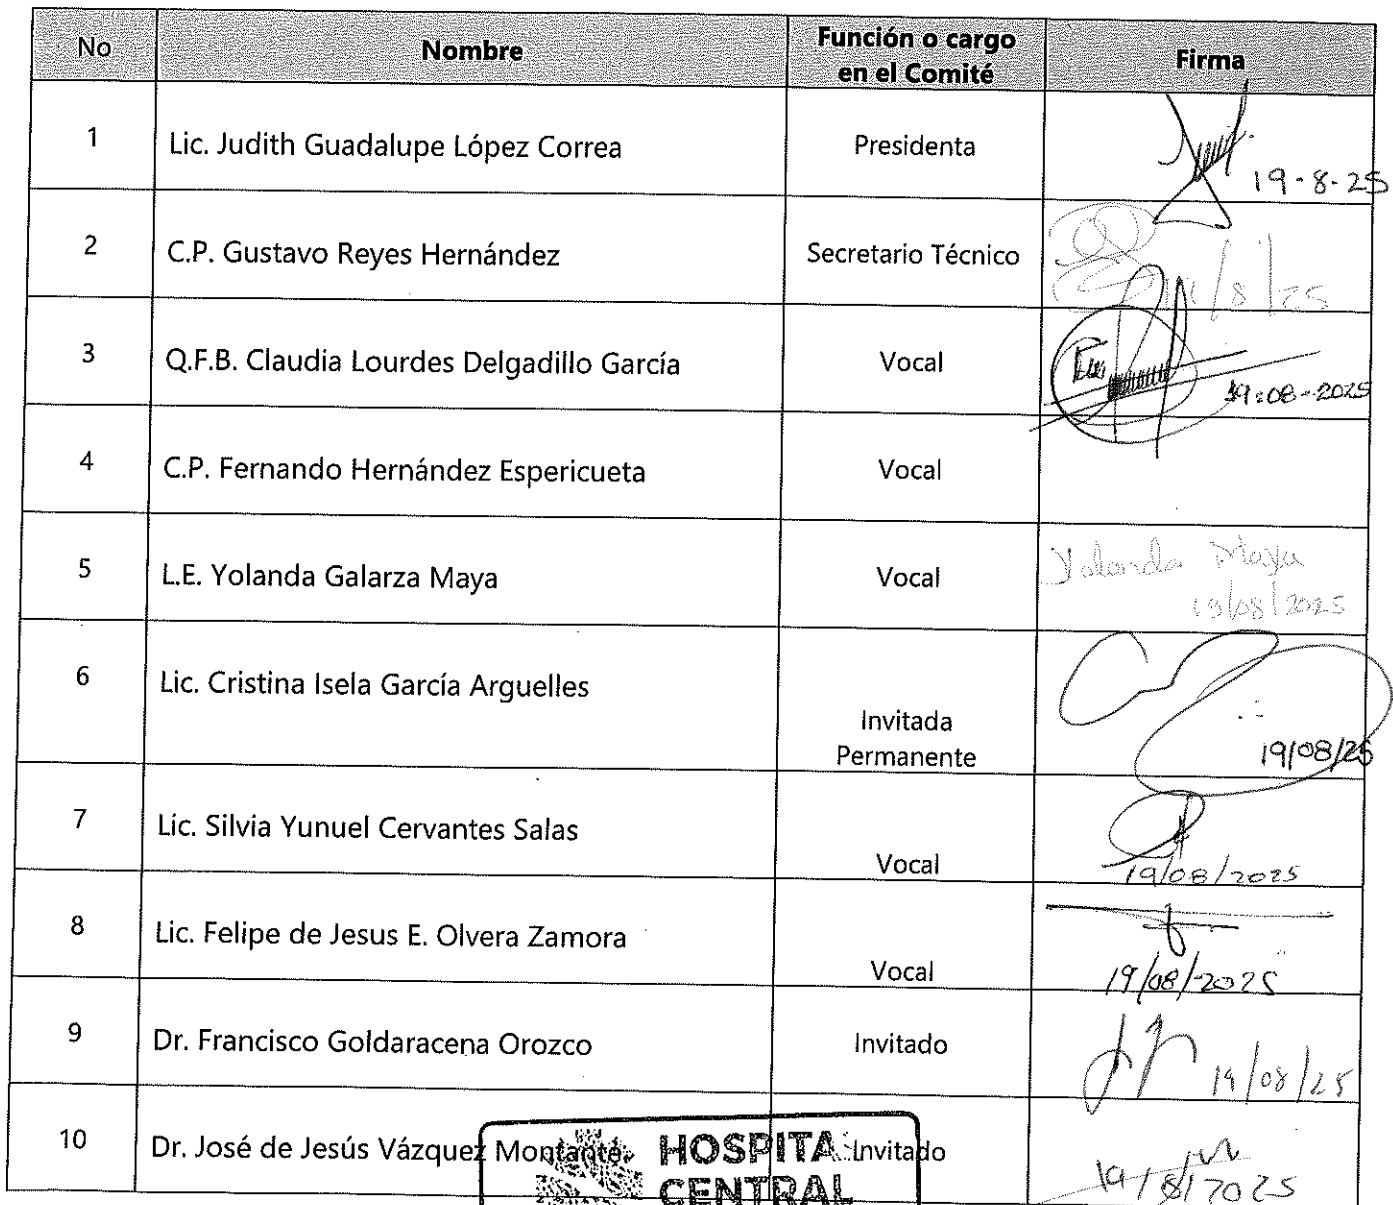 No Nombre Función o cargo en el Comité Firma
1 Lic. Judith Guadalupe López Correa Presidenta 19-8-25
2 C.P. Gustavo Reyes Hernández Secretario Técnico /8/25
3 Q.F.B. Claudia Lourdes Delgadillo García Vocal 19-08-2025
4 C.P. Fernando Hernández Espericueta Vocal
5 L.E. Yolanda Galarza Maya Vocal Yolanda Maya
19/08/2025
6 Lic. Cristina Isela García Arguelles Invitada Permanente 19/08/25
7 Lic. Silvia Yunuel Cervantes Salas Vocal 19/08/2025
8 Lic. Felipe de Jesus E. Olvera Zamora Vocal 19/08/2025
9 Dr. Francisco Goldaracena Orozco Invitado 19/08/25
10 Dr. José de Jesús Vázquez Montante Invitado 19/8/2025
HOSPITA
CENTRAL